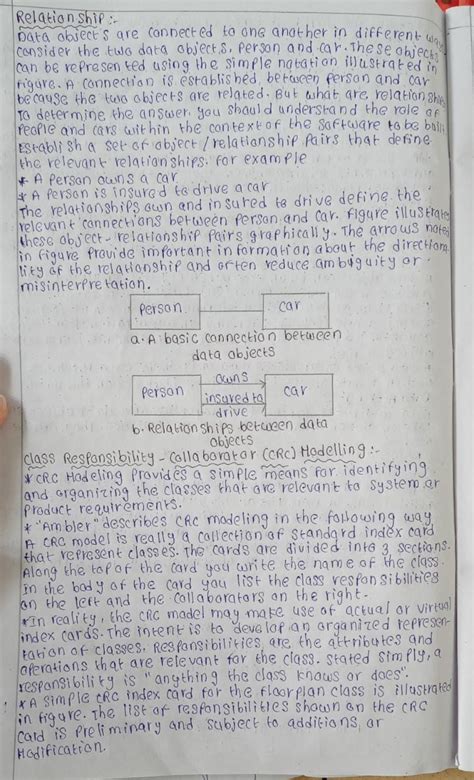 Relationship :-
Data objects are connected to one another in different ways
consider the two data objects, person and car. These objects
can be represented using the simple notation illustrated in
figure. A connection is established, between person and car
because the two objects are related. But what are relationships
To determine the answer, you should understand the role of
people and cars within the context of the software to be built
Establish a set of object/relationship pairs that define
the relevant relationships. for example
* A person owns a car
* A person is insured to drive a car
The relationships own and insured to drive define the
relevant connections between person and car. figure illustrates
these object-relationship pairs graphically. The arrows noted
in figure provide important information about the directiona
lity of the relationship and often reduce ambiguity or
misinterpretation.
person car
a. A basic connection between
data objects
person owns car
insured to
drive
b. Relationships between data
objects
Class Responsibility - Collaborator (CRC) Modelling :-
* CRC Modeling provides a simple means for identifying
and organizing the classes that are relevant to system or
product requirements.
* "Ambler" describes CRC modeling in the following way
A CRC model is really a collection of standard index card
that represent classes. The cards are divided into 3 sections.
Along the top of the card you write the name of the class.
in the body of the card you list the class responsibilities
on the left and the collaborators on the right.
* In reality, the CRC model may make use of actual or virtual
index cards. The intent is to develop an organized represen-
tation of classes. Responsibilities are the attributes and
operations that are relevant for the class. stated simply, a
responsibility is "anything the class knows or does".
* A simple CRC index card for the floorplan class is illustrated
in figure. The list of responsibilities shown on the CRC
card is preliminary and subject to additions, or
Modification.